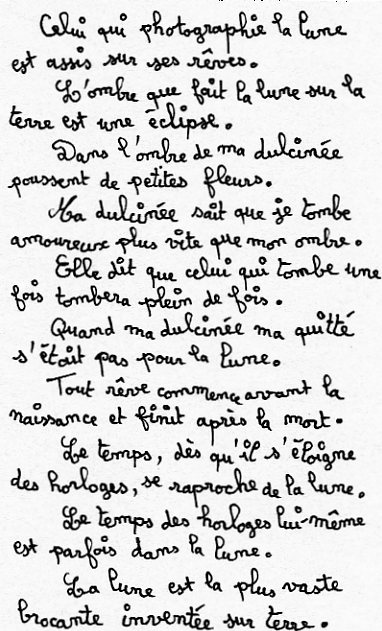 Celui qui photographie la lune
est assis sur ses rêves.
L'ombre que fait la lune sur la
terre est une éclipse.
Dans l'ombre de ma dulcinée
poussent de petites fleurs.
Ma dulcinée sait que je tombe
amoureux plus vite que mon ombre.
Elle dit que celui qui tombe une
fois tombera plein de fois.
Quand ma dulcinée ma quitté
s'était pas pour la lune.
Tout rêve commence avant la
naissance et finit après la mort.
Le temps, dès qu'il s'éloigne
des horloges, se raproche de la lune.
Le temps des horloges lui-même
est parfois dans la lune.
La lune est la plus vaste
brocante inventée sur terre.